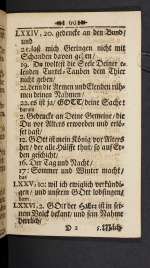 LXXIV. 20. gedencke an den Bund/
und
21. laß mich Geringen nicht mit
Schanden davon gehen/
19. Du wollest die Seele Deiner e-
lenden Turtel-Tauben dem Thier
nicht geben/
21. denn die Armen und Elenden rüh-
men deinen Nahmen/
22. es ist ja/ GOTT/ deine Sache!
darum
2. Gedencke an Deine Gemeine/ die
Du vor Alters erworben und erlö-
set hast/
12. GOtt ist mein König vor Alters
her/ der alle Hülffe thut/ so auf Er-
den geschicht/
16. Der Tag und Nacht/
17: Sommer und Winter macht/
der
LXXV. 10: will ich ewiglich verkündi-
gen/ und unserm GOtt lobsingen
LXXVI. 2. GOtt
nem Volck bekant/ und sein Nahme
herrlich/
D 2